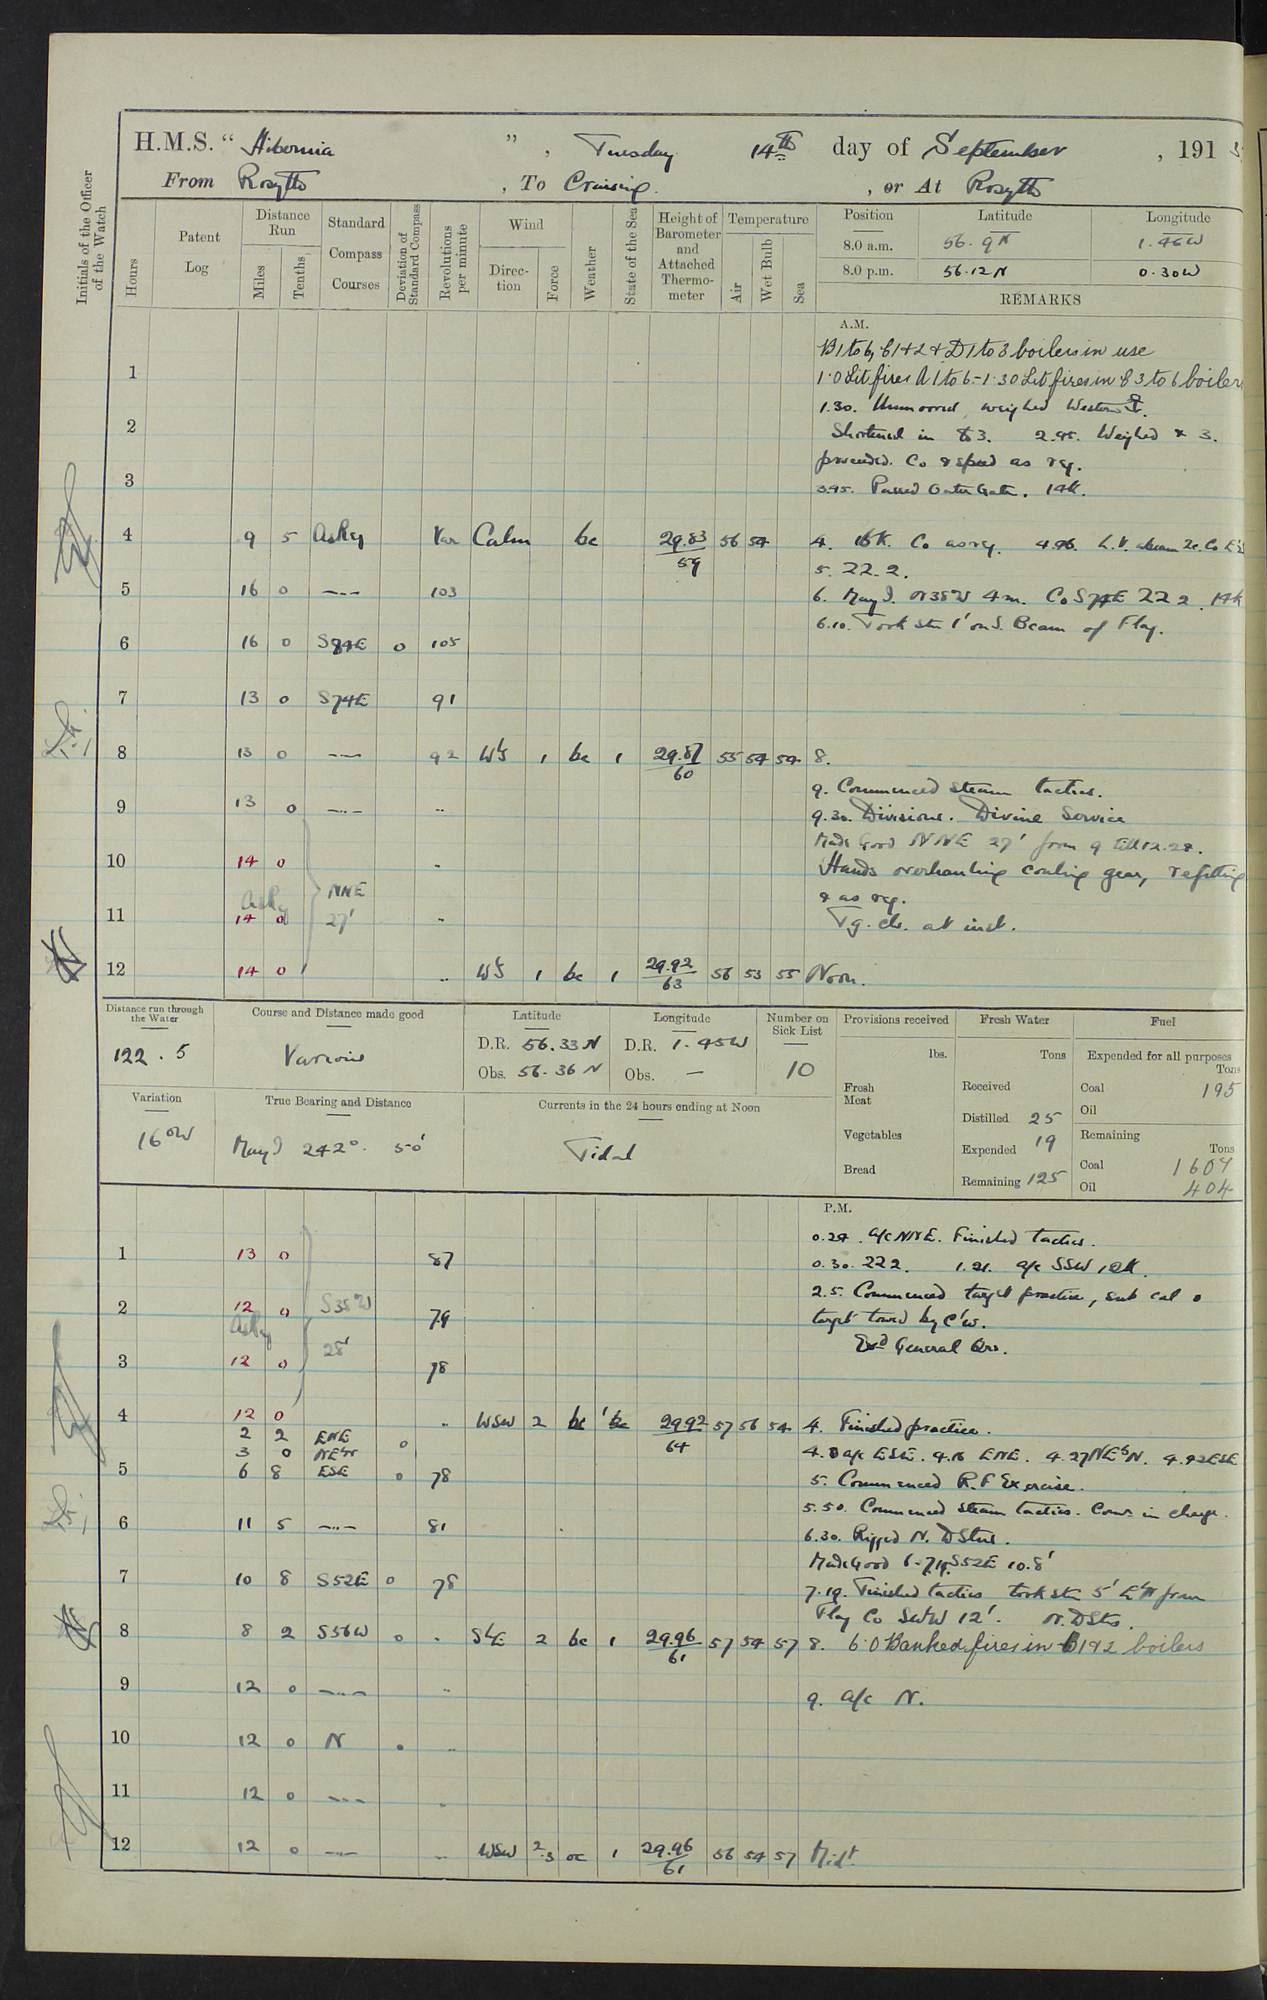 H.M.S. " Hibernia ", Tuesday 14th day of September, 191 5
From Rosyth, To Cruising, or At Rosyth
Initials of the Officer of the Watch
Hours
Patent Log
Distance Run
Miles
Tenths
Standard Compass Courses
Deviation of Standard Compass
Revolutions per minute
Wind
Direction
Force
Weather
State of the Sea
Height of Barometer and Attached Thermometer
Temperature
Air
Wet Bulb
Sea
Position Latitude Longitude
8.0 a.m. 56.9N 1.46W
8.0 p.m. 56.12N 0.30W
REMARKS
A.M.
B1 to 6, C1+2 & D1 to 3 boilers in use
1 1.0 Lit fires A1 to 6 - 1.30 Lit fires in C 3 to 6 boilers
1.30. Unmoored, weighed Western
2 Shortened in to 3. 2.45. Weighed & 3.
proceeded. Co & speed as req.
3 3.45. Passed Outer Gate. 14K.
4 9 5 As Req Var Calm bc 29.83 59 56 54 4. 16K. Co as req.
5. 22.2.
5 16 0 -..- 103 6. May I. N38W 4m. Co S74E 22 2. 14K
6.10. Took Stn 1' on S. Beam of Flag.
6 16 0 S84E 0 105
7 13 0 S74E 91
8 13 0 -..- 92 WbS 1 bc 1 29.87 60 55 54 54 8.
9. Commenced Steam tactics.
9 13 0 -..- .. 9.30. Divisions. Divine Service
Made Good NNE 27' from 9 till 12.28.
10 14 0 .. Hands overhauling coaling gear, refitting
As Req NNE & as req.
11 14 0 27' .. Tg. cls. at inst.
12 14 0 .. WbS 1 bc 1 29.92 63 56 53 55 Noon.
Distance run through the Water
122.5
Course and Distance made good
Various
Latitude
D.R. 56.33N
Obs. 56.36N
Longitude
D.R. 1.45W
Obs. —
Number on Sick List
10
Provisions received
lbs.
Fresh Meat
Vegetables
Bread
Fresh Water
Tons
Received
Distilled 25
Expended 19
Remaining 125
Fuel
Expended for all purposes
Tons
Coal 195
Oil
Remaining
Tons
Coal 1607
Oil 404
Variation
16°W
True Bearing and Distance
May I 242° 50'
Currents in the 24 hours ending at Noon
Tidal
P.M.
0.28. a/c NNE. Finished tactics.
1 13 0 87 0.30. 22 2. 1.21. a/c SSW 12K.
2.5. Commenced target practice, sub cal @
2 12 0 S35W 79 target towed by C'w.
As Req 28' Exd General Qrs.
3 12 0 78
4 12 0 .. WSW 2 bc 1 29.92 64 57 56 54 4. Finished practice.
2 2 ENE 0
3 0 NEbN 4.8 a/c ESE. 4.16 ENE. 4.27 NEbN. 4.42 ESE
5 6 8 ESE 0 78 5. Commenced R.F Exercise.
5.50. Commenced Steam tactics. Comr. in charge.
6 11 5 -..- 81 6.30. Rigged N. D Stns.
Made Good 6-7.19. S52E 10.8'
7 10 8 S52E 0 78 7.19. Finished tactics took stn 5' EbN from
Flag Co SWbW 12'. N.D Stns.
8 8 2 S56W 0 .. SbE 2 bc 1 29.96 61 57 54 57 8. 6.0 Banked fires in B1&2 boilers
9 12 0 -..- .. 9. a/c N.
10 12 0 N 0 ..
11 12 0 -..- ..
12 12 0 -..- .. WSW 2.3 oc 1 29.96 61 56 54 57 Midt.